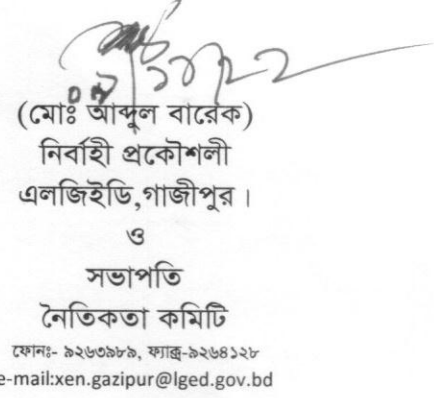 (মোঃ আব্দুল বারেক)
নির্বাহী প্রকৌশলী
এলজিইডি,গাজীপুর ।
ও
সভাপতি
নৈতিকতা কমিটি
ফোনঃ- ৯২৬৩৯৮৯, ফ্যাক্স-৯২৬৪১২৮
e-mail:xen.gazipur@lged.gov.bd